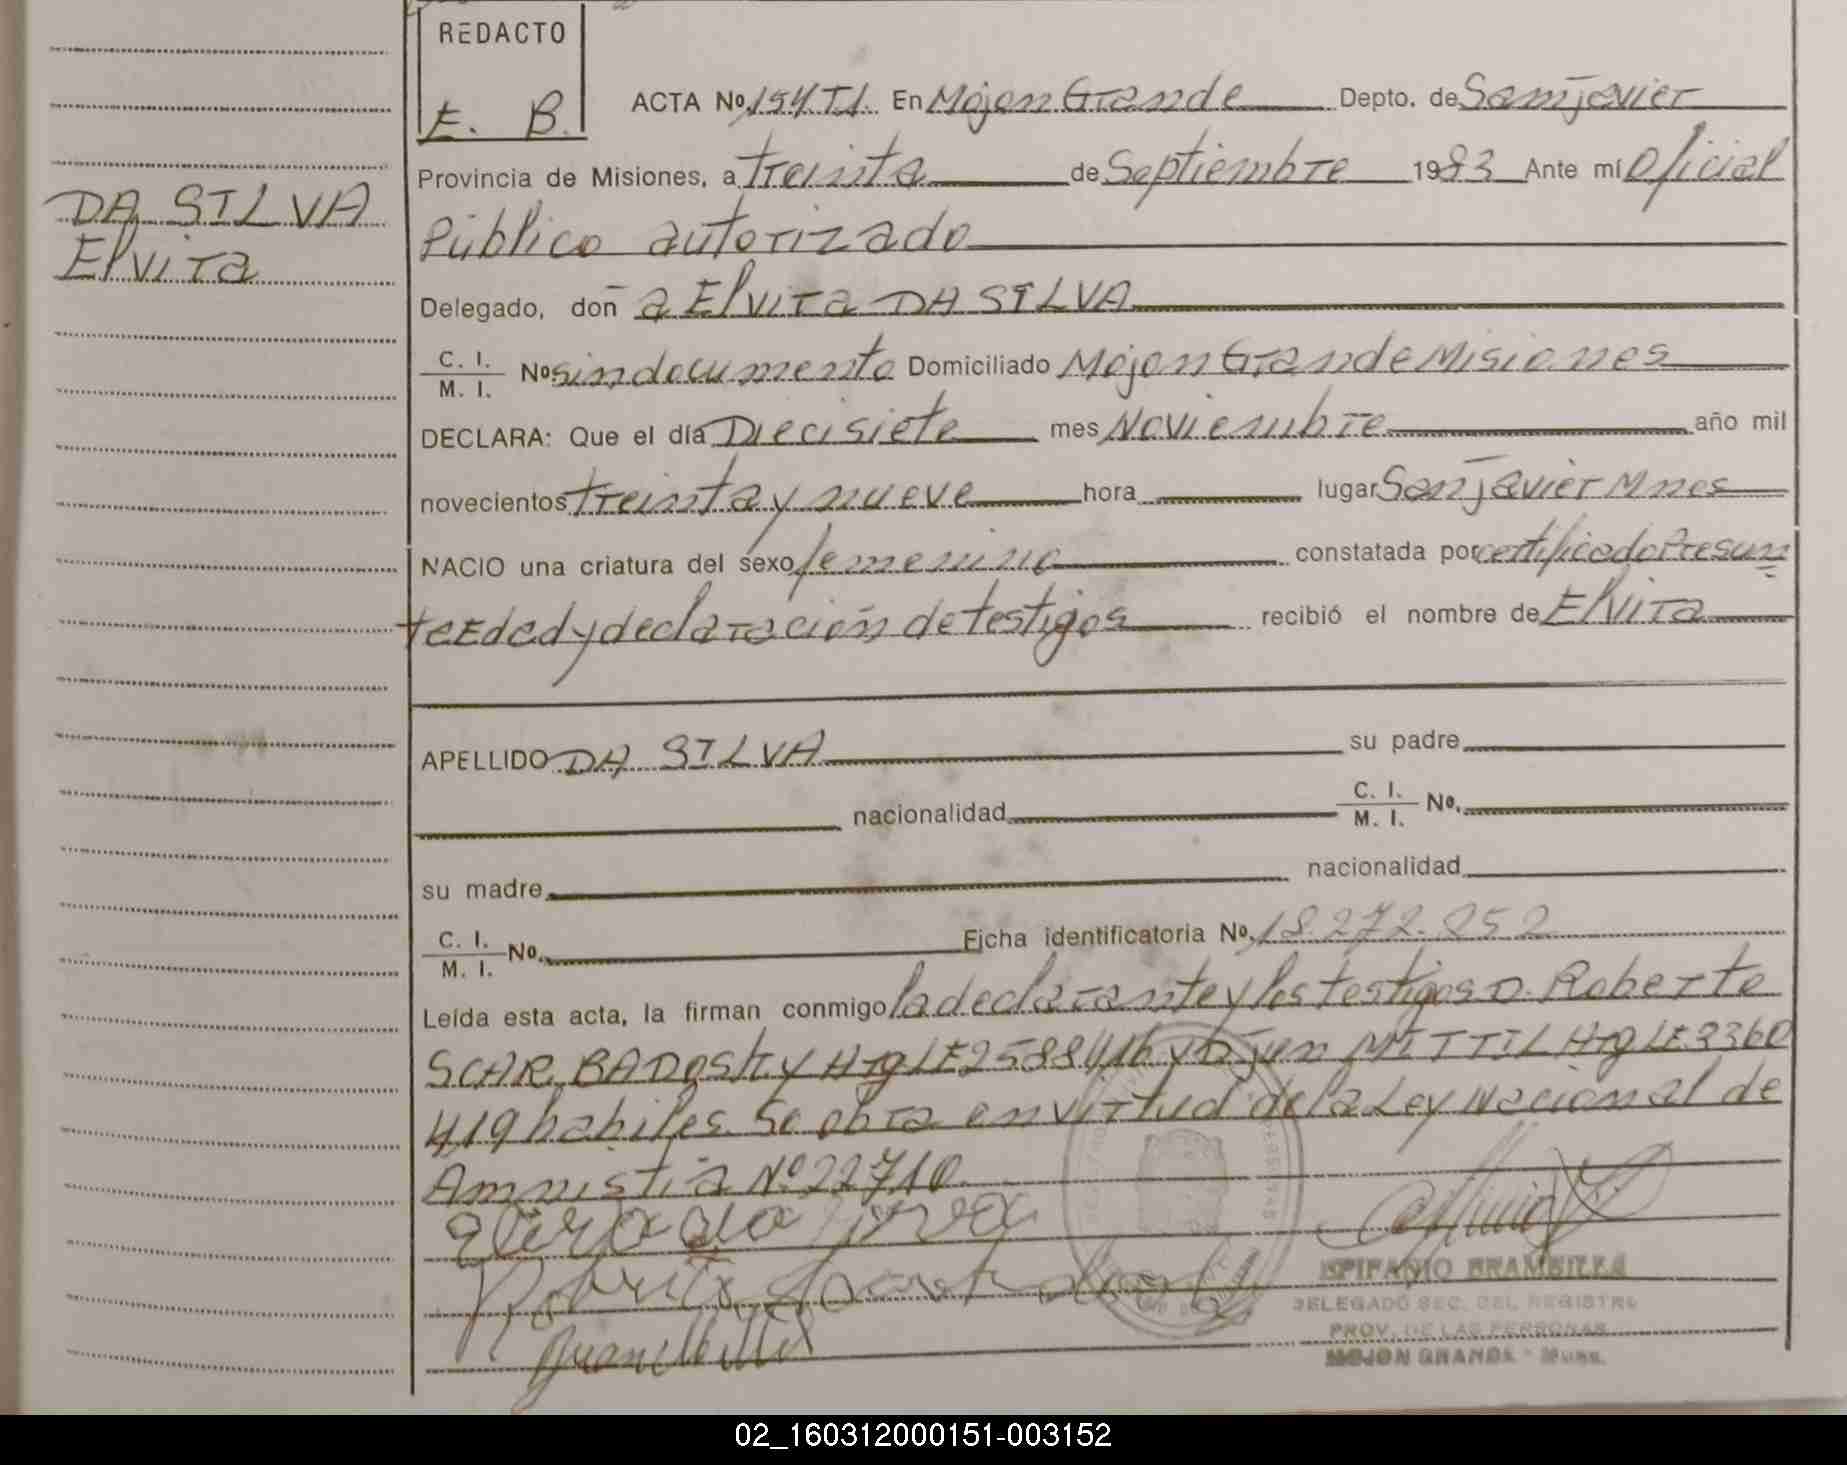 REDACTO
E. B.
ACTA No. 154 T1. En Mojon Grande Depto. de San Javier
Provincia de Misiones, a treinta de Septiembre 1983 Ante mí Oficial
Público autorizado
DA SILVA
Elvira
Delegado, don a Elvira DA SILVA
C. I.
M. I. No sin documento Domiciliado Mojon Grande Misiones
DECLARA: Que el día Diecisiete mes Noviembre año mil
novecientos treinta y nueve hora lugar San Javier Mnes
NACIO una criatura del sexo femenino constatada por certificado Presun
te Edad y declaración de testigos recibió el nombre de Elvira
APELLIDO DA SILVA su padre
nacionalidad C. I.
M. I. No.
su madre nacionalidad
C. I.
M. I. No. Ficha identificatoria No. 18.272.852
Leída esta acta, la firman conmigo la declarante y los testigos D. Roberto
SCAR BADOSKY Arg LE 2588416 y D. Juan MITTIL Arg LE 3360
419 habiles. Se obra en virtud de la Ley Nacional de
Amnistia Nº 22710
elvira da silva
Juan Mittil
EPIFANIO BRAMBILLA
DELEGADO SEC. DEL REGISTRO
PROV. DE LAS PERSONAS
MOJON GRANDE - Mnes.
02_160312000151-003152